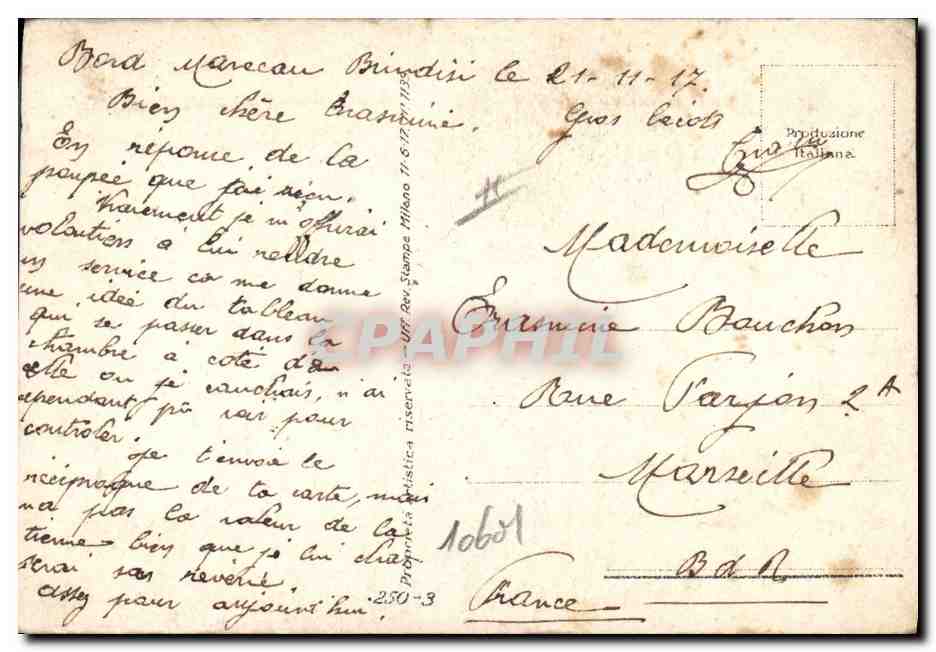 Bord Marecau Brindisi le 21-11-17.
Bien chère Erasmine. Gros baisers
En réponse de la
poupée que j'ai reçu.
Vraiement je m'offrirai
volontiers à lui rendre
un service ca me donne
une idée du tableau
qui se passer dans la
chambre à coté de
elle ou je couchais, n'ai
cependant pu voir pour
controler.
je t'envoie le
réciproque de ta carte, mais
n'a pas la valeur de la
tienne bien que je lui
serai sa rêverie
assez pour aujourd'hui
Proprietà artistica riservata - Uff. Rev. Stampe Milano 11-6-17. N. 1139
250-3
Produzione
Italiana
Mademoiselle
Erasmine Bouchon
Rue Farjon 2A
Marseille
B d R
France
10601
CPAPHIL